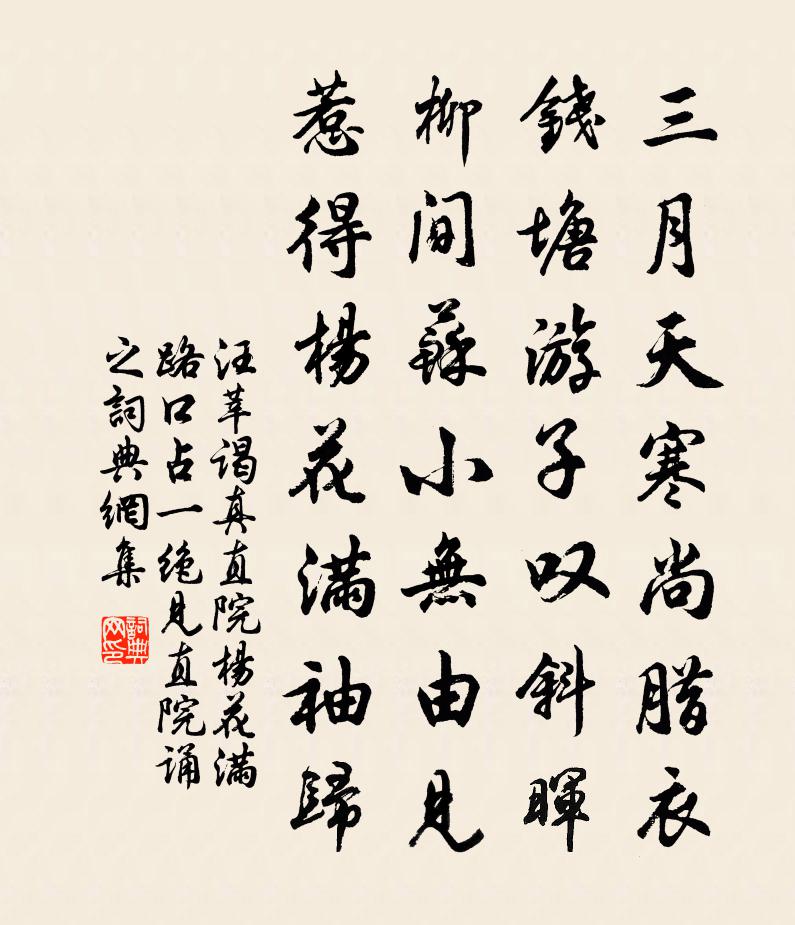 三月天寒尚腊衣
錢塘游子叹斜暉
柳间蘇小無由見
惹得楊花满袖歸
汪莘谒真直院楊花满
路口占一绝見直院诵
之詞典網集
詞典
网印